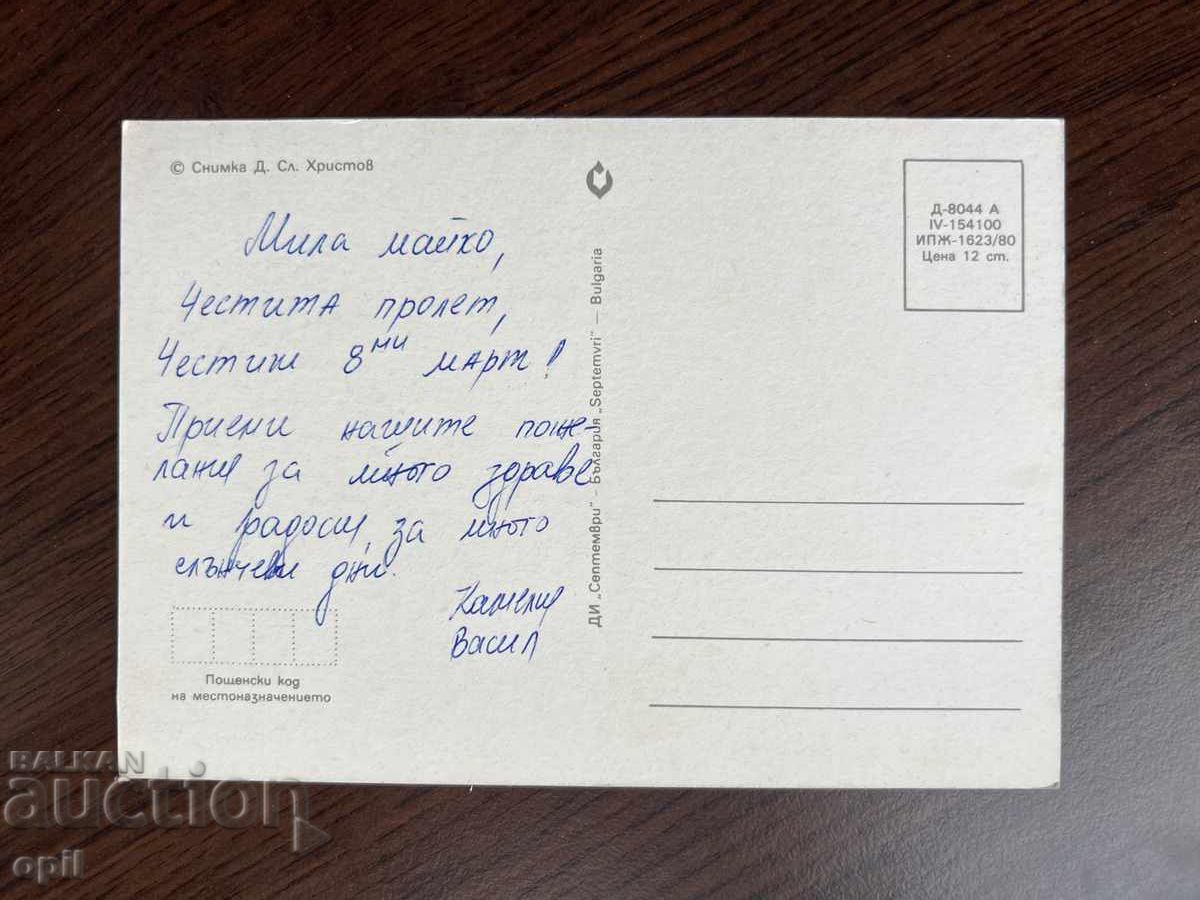 © Снимка Д. Сл. Христов
Мила майко,
Честита пролет,
Честит 8ми март!
Приеми нашите поже-
лания за много здраве
и радости, за много
слънчеви дни.
Камелия
Васил
Пощенски код
на местоназначението
ДИ „Септември" – България „Septemvri" – Bulgaria
Д-8044 А
IV-154100
ИПЖ-1623/80
Цена 12 ст.
BALKAN
auction
opil